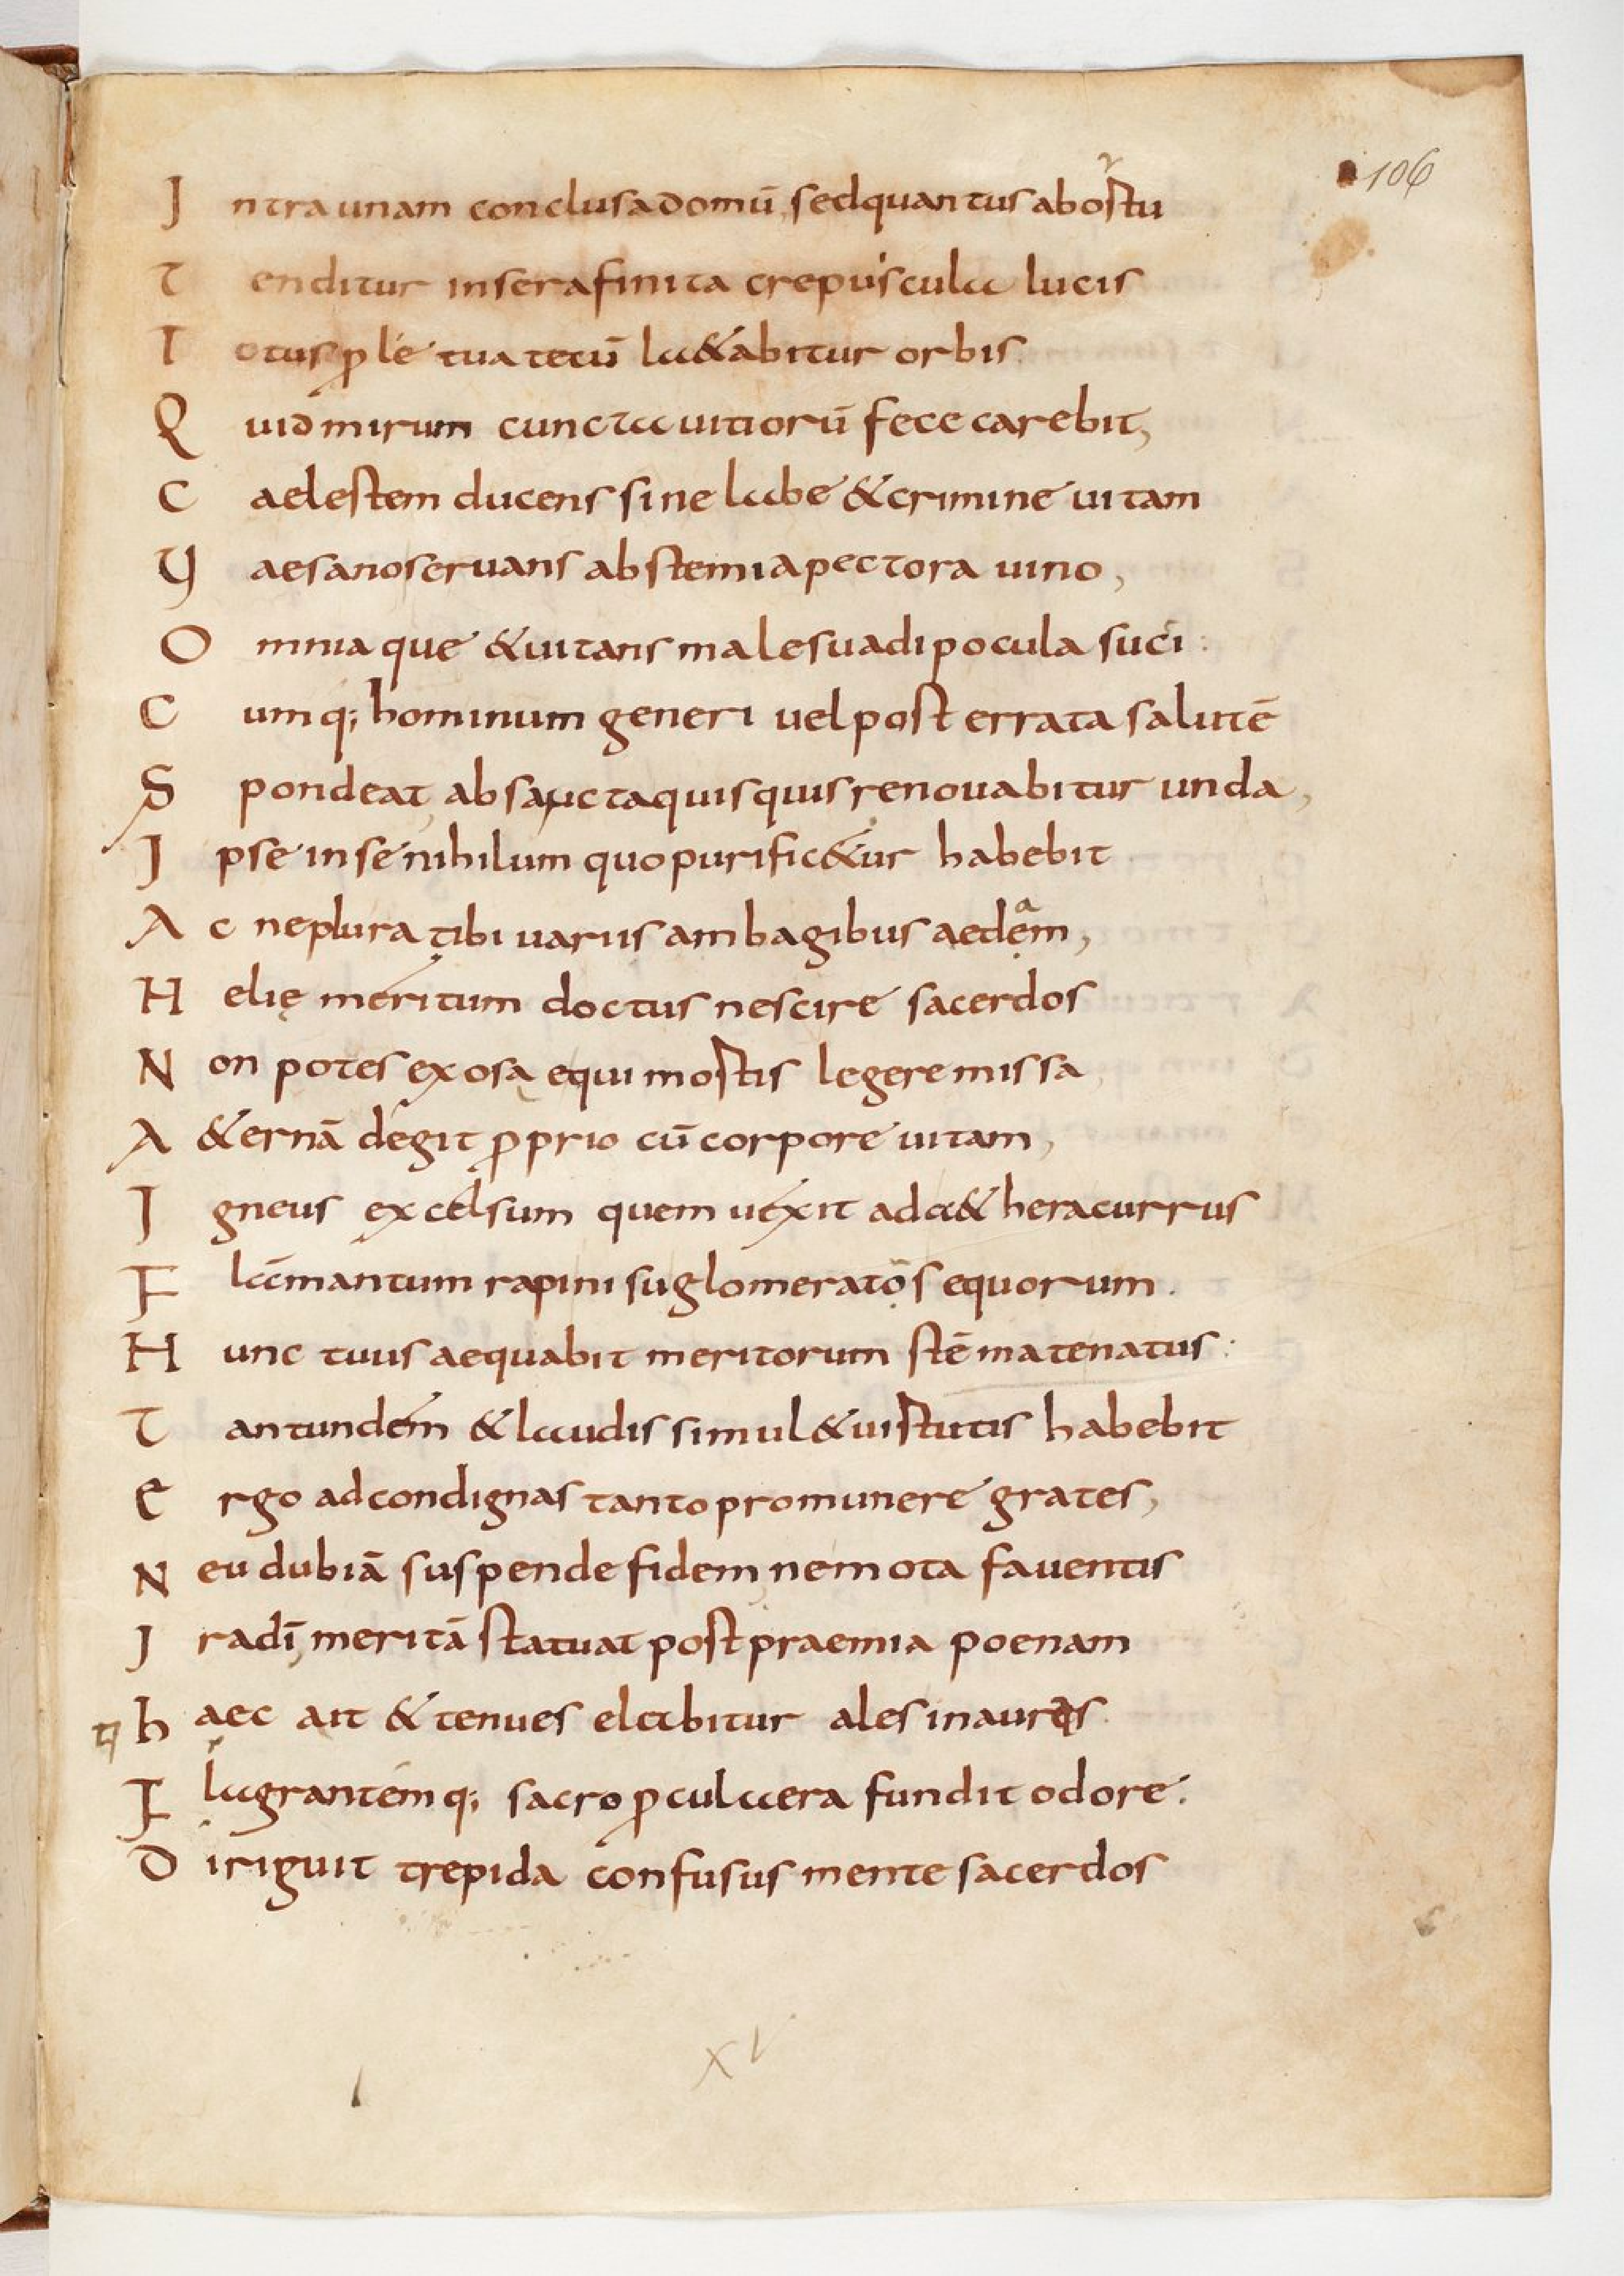 106
Intra unam conclusa domū, sed quantus ab ostu
Tenditur in sera finita crepuscula lucis
Totus ꝓle tua tetū la&abitur orbis.
Quid mirum cuncta uitiorū fece carebit,
Caelestem ducens sine labe & crimine uitam
Vaesano seruans abstemia pectora uino,
Omniaque & uitans malesuadi pocula suci:
Cumq; hominum generi uel post errata salutē
Spondeat, ab sancta quisquis renouabitur unda,
Ipse in se nihilum quo purific&ur habebit
Ac ne plura tibi uariis ambagibus aedam,
Helię meritum doctus nescire sacerdos
Non potes exosa equi mostis legere missa
A&ernā degit ꝓprio cū corpore uitam,
Igneus excelsum quem uexit ad a&hera currus
Flāmantum rapini su glomeratos equorum.
Hunc tuus aequabit meritorum stēmate natus:
Tantundem & laudis simul & uistutis habebit
Ergo ad condignas tanto pro munere grates,
Neu dubiā suspende fidem, nem ota fauentis
Ira dī, meritā statuat post praemia poenam
haec ait & tenues elabitur ales in aures.
Flagrantemq; sacro ꝓcul aera fundit odore.
Diriguit trepida confusus mente sacerdos
XV